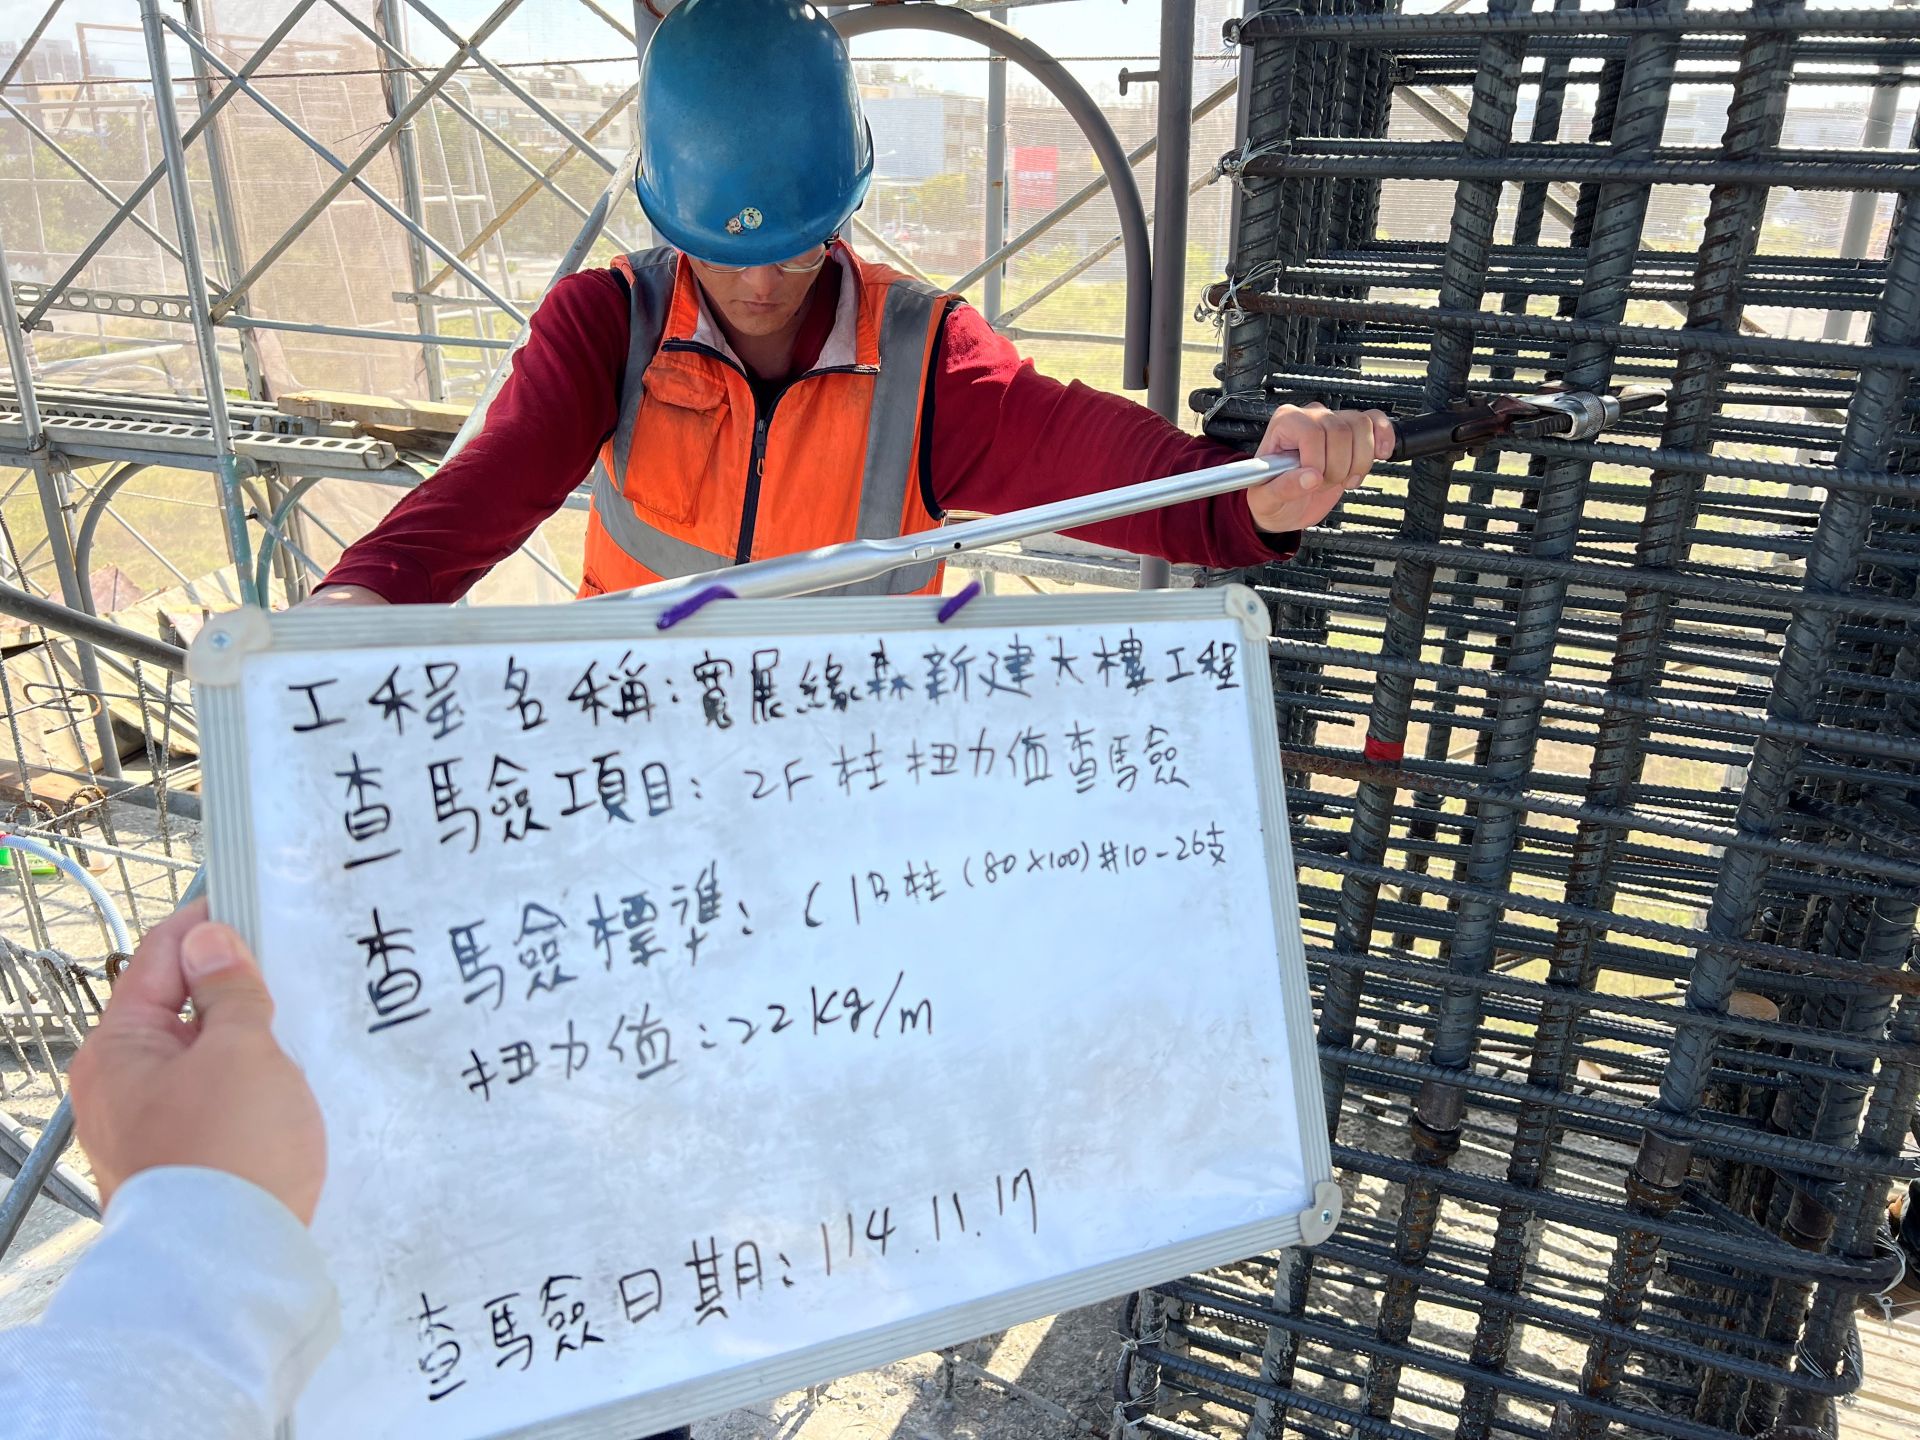 工程名稱:寬展緣森新建大樓工程
查驗項目:2F柱扭力值查驗
查驗標準:C1B柱(80x100)#10-26支
扭力值:22kg/m
查驗日期:114.11.17